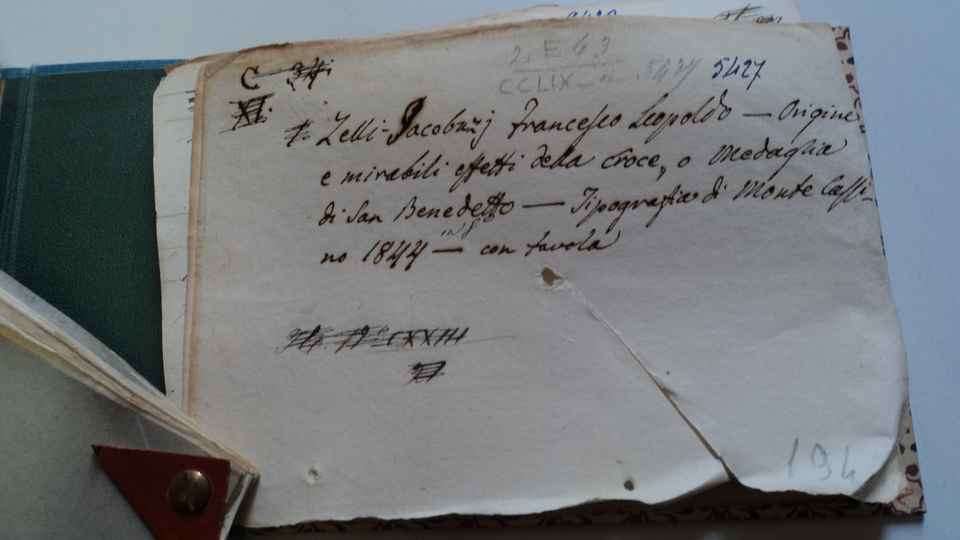 2. E 6 3
C 34
CCLIX 5427 5427
XI.
Zelli-Jacobuzj Francesco Leopoldo — Origine
e mirabili effetti della Croce, o Medaglia
di San Benedetto — Tipografia di Monte Cassi-
no 1844 — con tavola
CXXIII
194